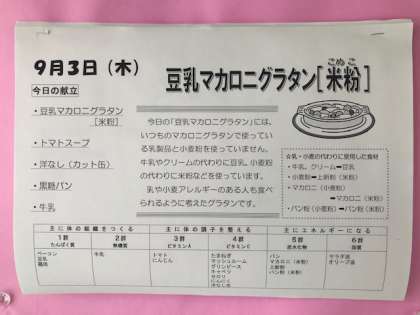 9月3日（木）
今日の献立
・豆乳マカロニグラタン
［米粉］
・トマトスープ
・洋なし（カット缶）
・黒糖パン
・牛乳
こめこ
豆乳マカロニグラタン［米粉］
今日の「豆乳マカロニグラタン」には、
いつものマカロニグラタンで使っている
乳製品と小麦粉を使っていません。
牛乳やクリームの代わりに豆乳。小麦粉
の代わりに米粉などを使っています。
乳や小麦アレルギーのある人も食べ
られるように考えたグラタンです。
☆乳・小麦の代わりに使用した食材
・牛乳、クリーム➡豆乳
・小麦粉➡上新粉（米粉）
・マカロニ（小麦粉）
➡マカロニ（米粉）
・パン粉（小麦粉）➡パン粉（米粉）
主に体の組織をつくる
主に体の調子を整える
主にエネルギーになる
1群
たんぱく質
2群
無機質
3群
ビタミンA
4群
ビタミンC
5群
炭水化物
6群
脂質
ベーコン
豆乳
鶏肉
牛乳
トマト
にんじん
たまねぎ
マッシュルーム
グリンピース
キャベツ
セロリ
にんにく
洋なし缶
パン
マカロニ（米粉）
上新粉
パン粉（米粉）
サラダ油
オリーブ油